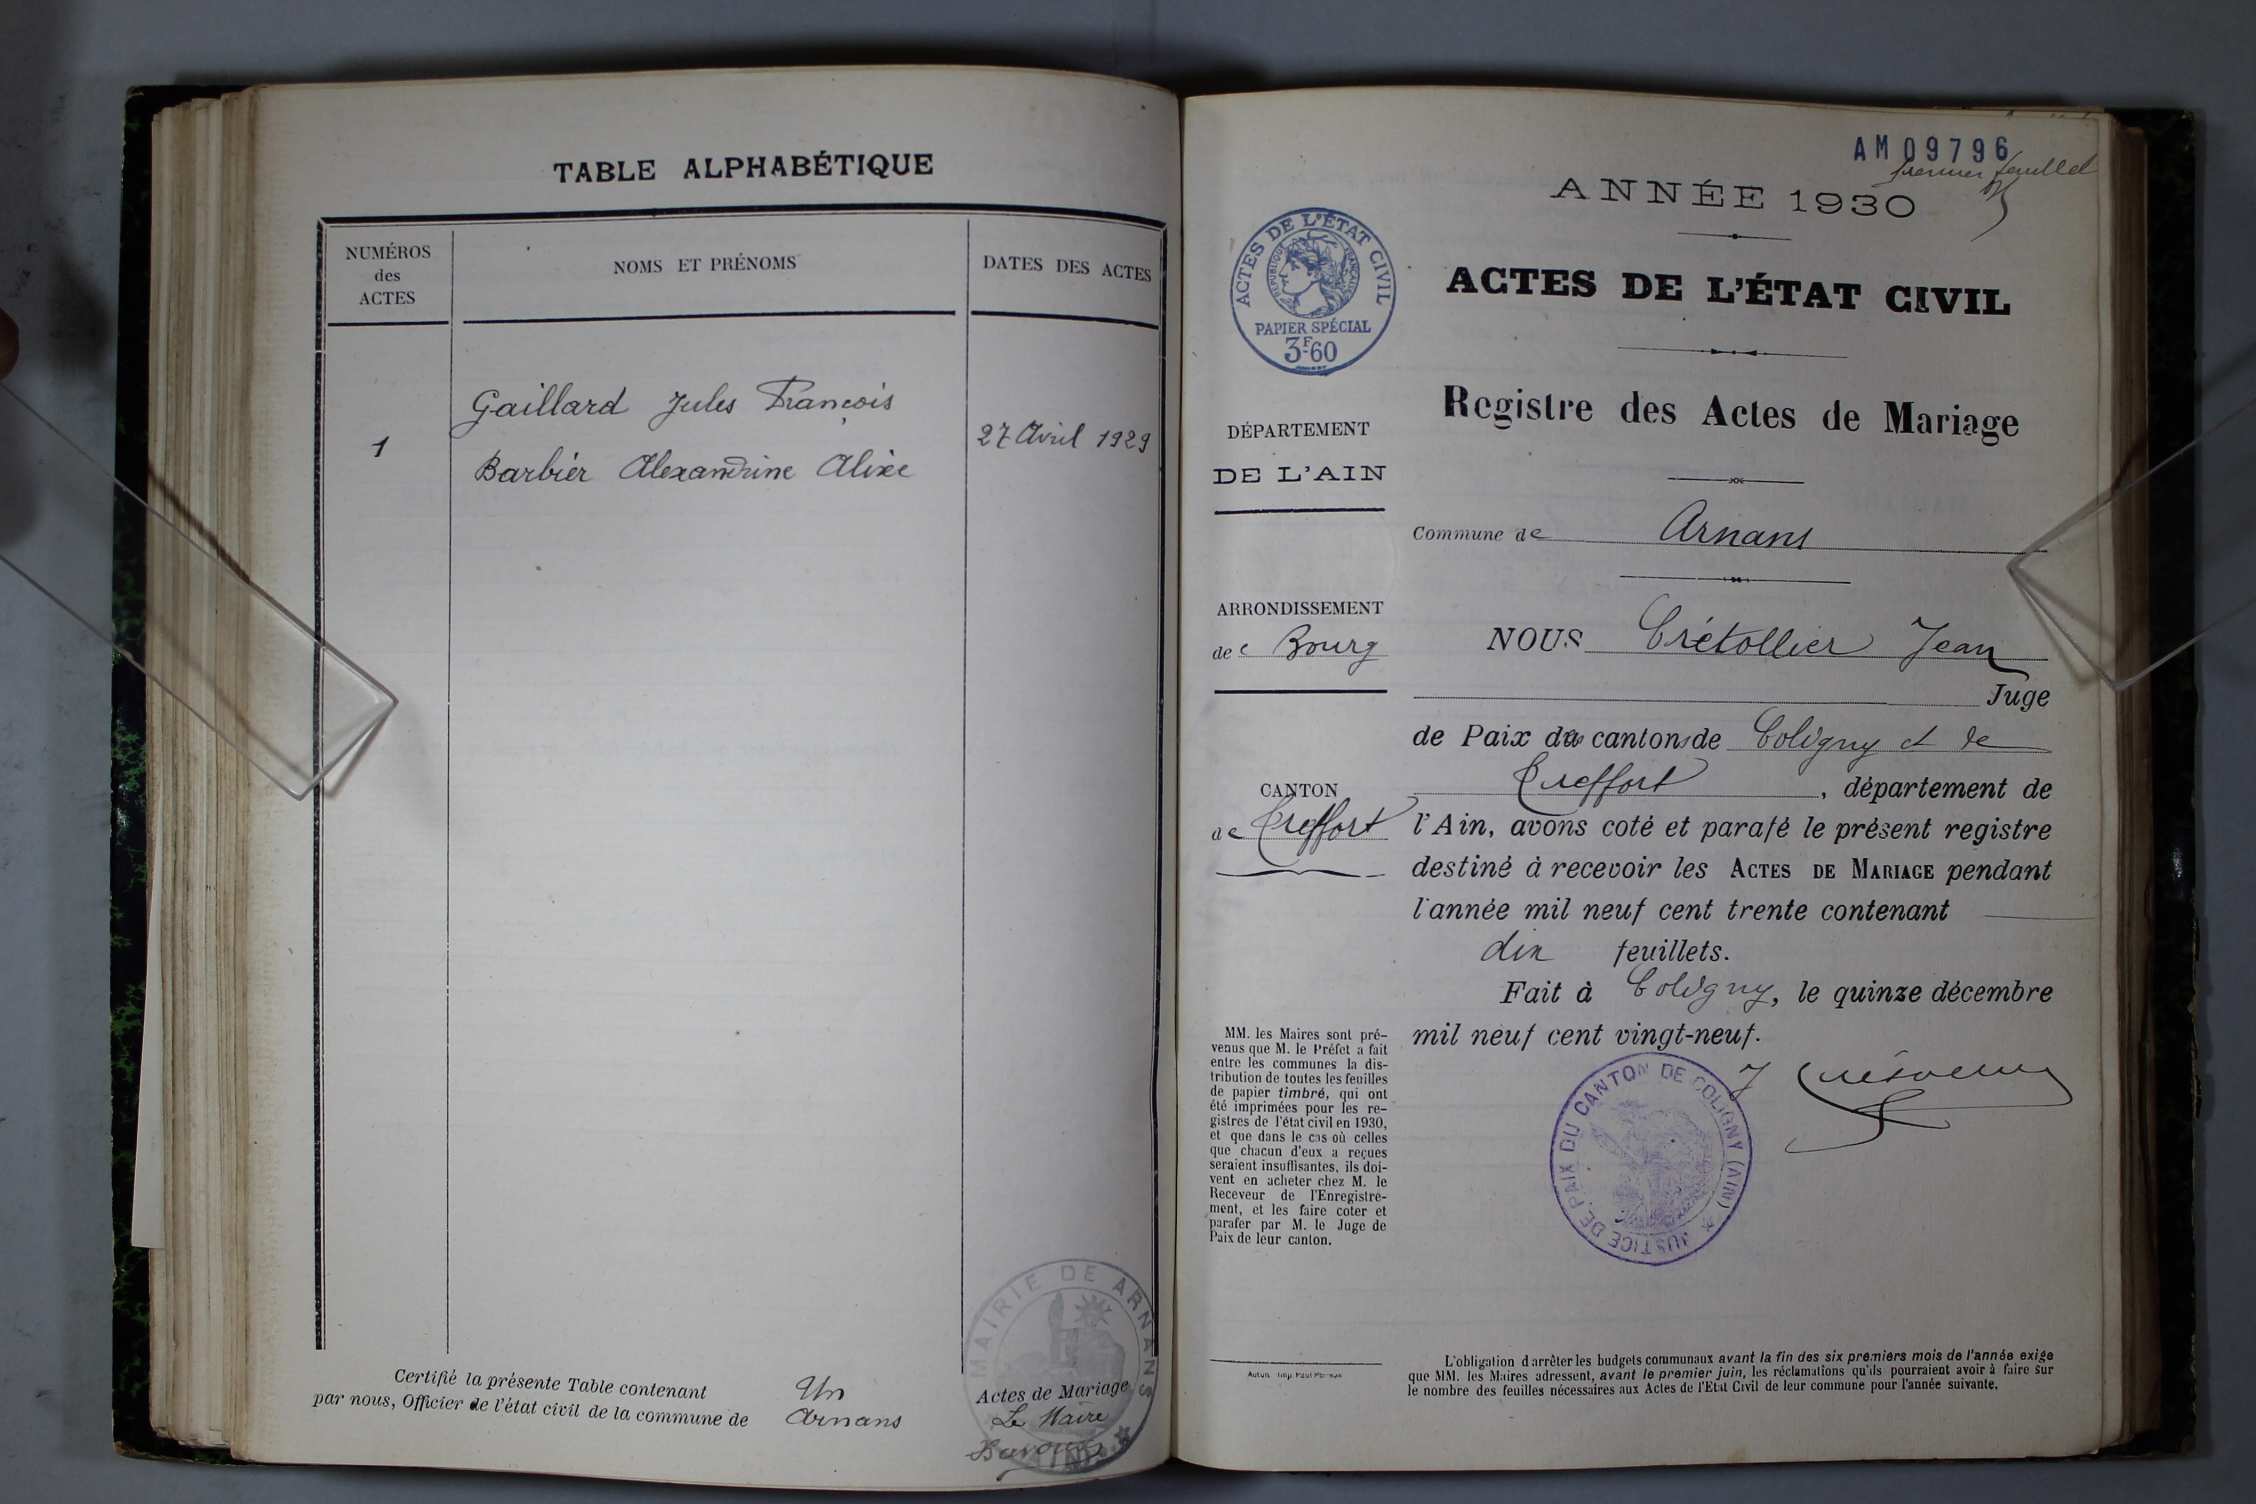 TABLE ALPHABÉTIQUE
NUMÉROS
des
ACTES
NOMS ET PRÉNOMS
DATES DES ACTES
Gaillard Jules François
1
27 Avril 1929
Barbier Alexandrine Alixe
Certifié la présente Table contenant Un Actes de Mariage
par nous, Officier de l'état civil de la commune de Arnans
Le Maire
MAIRIE DE ARNANS
AM 09796
premier feuillet
ANNÉE 1930
ACTES DE L'ÉTAT CIVIL
RÉPUBLIQUE FRANÇAISE
PAPIER SPÉCIAL
3F60
ACTES DE L'ÉTAT CIVIL
Registre des Actes de Mariage
DÉPARTEMENT
DE L'AIN
Commune de Arnans
ARRONDISSEMENT
de Bourg
CANTON
de Treffort
NOUS Crétollier Jean
Juge
de Paix des cantons de Coligny et de
Treffort, département de
l'Ain, avons coté et parafé le présent registre
destiné à recevoir les ACTES DE MARIAGE pendant
l'année mil neuf cent trente contenant
dix feuillets.
Fait à Coligny, le quinze décembre
mil neuf cent vingt-neuf.
JUSTICE DE PAIX DU CANTON DE COLIGNY (AIN)
MM. les Maires sont pré-
venus que M. le Préfet a fait
entre les communes la dis-
tribution de toutes les feuilles
de papier timbré, qui ont
été imprimées pour les re-
gistres de l'état civil en 1930,
et que dans le cas où celles
que chacun d'eux a reçues
seraient insuffisantes, ils doi-
vent en acheter chez M. le
Receveur de l'Enregistre-
ment, et les faire coter et
parafer par M. le Juge de
Paix de leur canton.
Autun Imp. Paul
L'obligation d'arrêter les budgets communaux avant la fin des six premiers mois de l'année exige
que MM. les Maires adressent, avant le premier juin, les réclamations qu'ils pourraient avoir à faire sur
le nombre des feuilles nécessaires aux Actes de l'Etat Civil de leur commune pour l'année suivante.